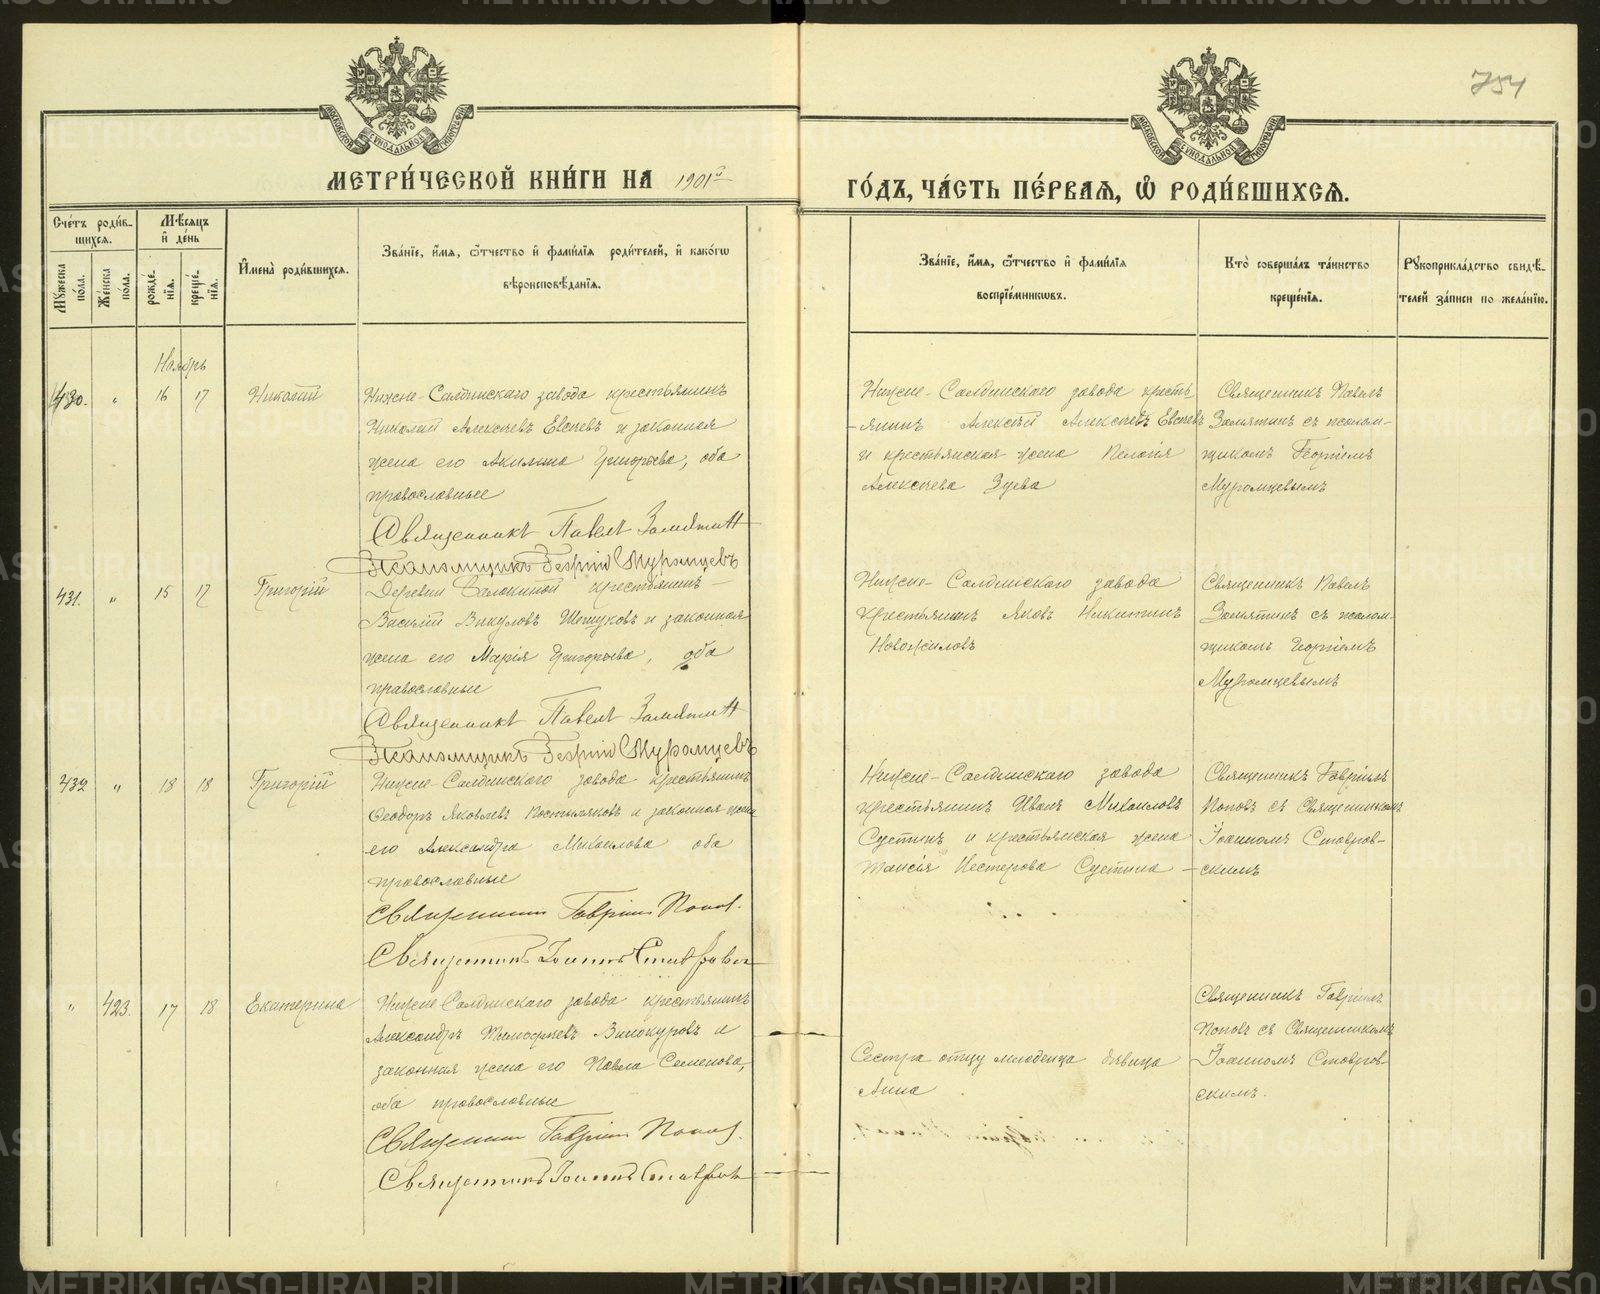 754
МОСКОВСКОЙ СѴНОДАЛЬНОЙ ТИПОГРАФІИ
МОСКОВСКОЙ СѴНОДАЛЬНОЙ ТИПОГРАФІИ
МЕТРИ́ЧЕСКОЙ КНИ́ГИ НА 1901й
ГО́ДЪ, ЧА́СТЬ ПЕ́РВАѦ, Ѿ РОДИ́ВШИХСѦ.
Сче́тъ роди́в-
шихсѧ.
Мѣ́сѧцъ
и҆ де́нь
Мꙋ́жеска по́ла.
Же́нска по́ла.
рожде́-
нїѧ.
креще́-
нїѧ.
И҆мена̀ роди́вшихсѧ.
Зва́нїе, и҆́мѧ, ѻ҆́тчество и҆ фами́лїѧ роди́телей, и҆ како́гѡ
вѣроисповѣ́данїѧ.
Зва́нїе, и҆́мѧ, ѻ҆́тчество и҆ фами́лїѧ
воспрїе́мникѡвъ.
Кто̀ соверша́лъ та́инство
креще́нїѧ.
Рꙋкоприкла́дство свидѣ́-
телей за́писи по жела́нїю.
Ноябрь
430. " 16 17 Николай
Нижне-Салдинскаго завода крестьянинъ
Николай Алексѣевъ Евсѣевъ и законная
жена его Акилина Григорьева, оба
православные
Священникъ Павелъ Замятин
Псаломщикъ Георгій Муромцевъ
Нижне-Салдинскаго завода кресть
-янинъ Алексѣй Алексѣевъ Евсѣевъ
и крестьянская жена Пелагія
Алексѣева Зуева
Священникъ Павелъ
Замятинъ съ псалом-
щикомъ Георгіемъ
Муромцевымъ
431. " 15 17 Григорій
Деревни крестьянинъ
Василій Викуловъ Шошуковъ и законная
жена его Марія Григорьева, оба
православные
Священникъ Павелъ Замятин
Псаломщикъ Георгій Муромцевъ
Нижне-Салдинскаго завода
крестьянинъ Яковъ Никитинъ
Новожиловъ
Священникъ Павелъ
Замятинъ съ псалом-
щикомъ Георгіемъ
Муромцевымъ
432 " 18 18 Григорій
Нижне-Салдинскаго завода крестьянинъ
Ѳеодоръ Яковлевъ Постыляковъ и законная жена
его Александра Михаилова оба
православные
Священникъ Гавріилъ Попов.
Священникъ Іоаннъ Ставровск
Нижне-Салдинскаго завода
крестьянинъ Иванъ Михаиловъ
Сустинъ и крестьянская жена
Таисія Нестерова Сустина
Священникъ Гавріилъ
Поповъ съ Священникомъ
Іоанномъ Ставров-
скимъ
" 423. 17 18 Екатерина
Нижне-Салдинскаго завода крестьянинъ
Александръ Тимофѣевъ Винокуровъ и
законная жена его Павла Семенова,
оба православные
Священникъ Гавріилъ Попов.
Священникъ Іоаннъ Ставровск
Сестра отцу младенца дѣвица
Анна
Священникъ Гавріилъ
Поповъ съ Священникомъ
Іоанномъ Ставров-
скимъ.
METRIKI.GASO-URAL.RU